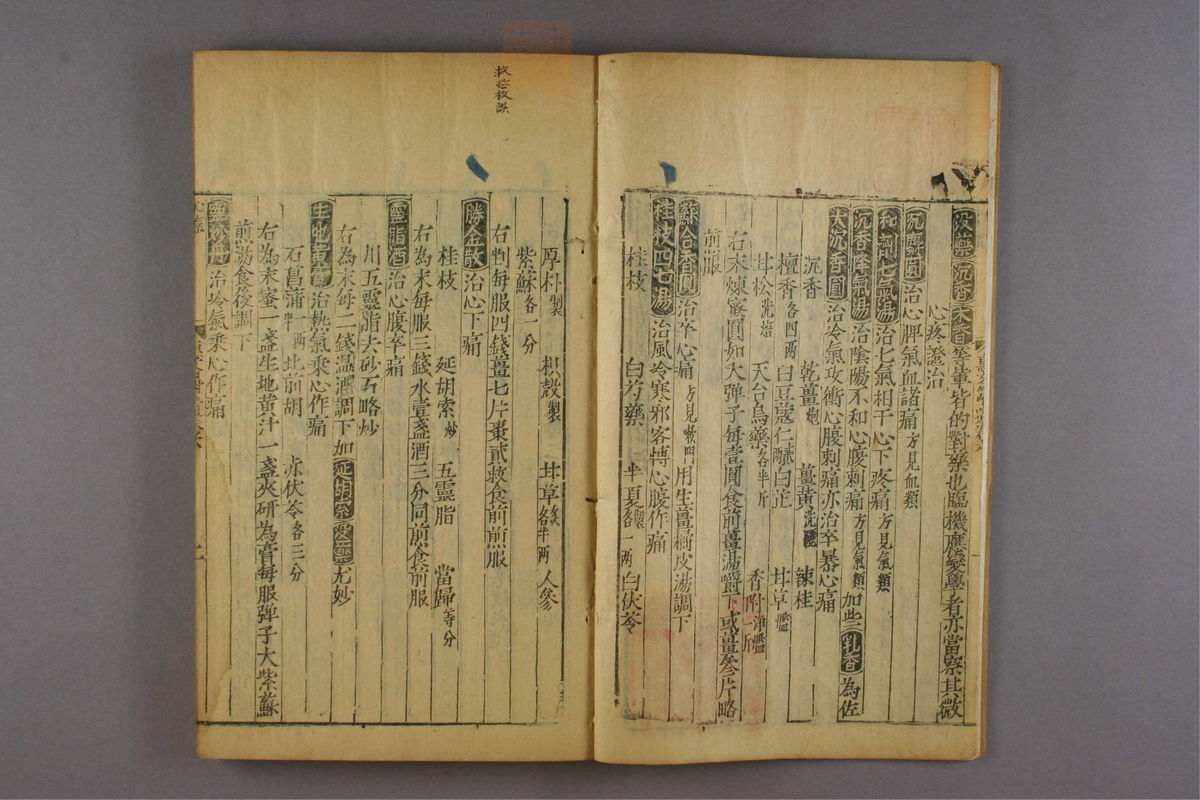 沒藥沉香木香等輩皆的對藥也臨機應變學者亦當察其微
心疼證治
沉麝圓治心脾氣血諸痛方見血類
和劑七氣湯治七氣相干心下疼痛方見氣類
沉香降氣湯治陰陽不和心腹刺痛方見氣類加些乳香為佐
大沉香圓治冷氣攻衝心腹刺痛亦治卒暴心痛
沉香 乾薑炮 薑黃洗 辣桂
檀香各四兩 白豆蔻仁 白芷 甘草
甘松洗焙 天台烏藥各半斤 香附
右末煉蜜圓如大彈子每壹圓食前薑湯嚼下或薑叄片略
煎服
蘇合香圓治卒心痛方見 用生薑橘皮湯調下
桂枝四七湯治風冷寒邪客搏心腹作痛
桂枝 白芍藥 半夏製各一兩 白伏苓
厚朴製 枳殼製 甘草炙各半兩 人參
紫蘇各一分
右剉每服四錢薑七片棗貳枚食前煎服
勝金散治心下痛
桂枝 延胡索炒 五靈脂 當歸等分
右為末每服三錢水壹盞酒三分同煎食前服
靈脂酒治心腹卒痛
川五靈脂去砂石略炒
右為末每二錢溫酒調下加延胡索沒藥尤妙
生地黃膏治熱氣乘心作痛
石菖蒲一兩半 北前胡 赤伏苓各三分
右為末蜜一盞生地黃汁一盞夾研為膏每服彈子大紫蘇
煎湯食後調下
治冷氣乘心作痛